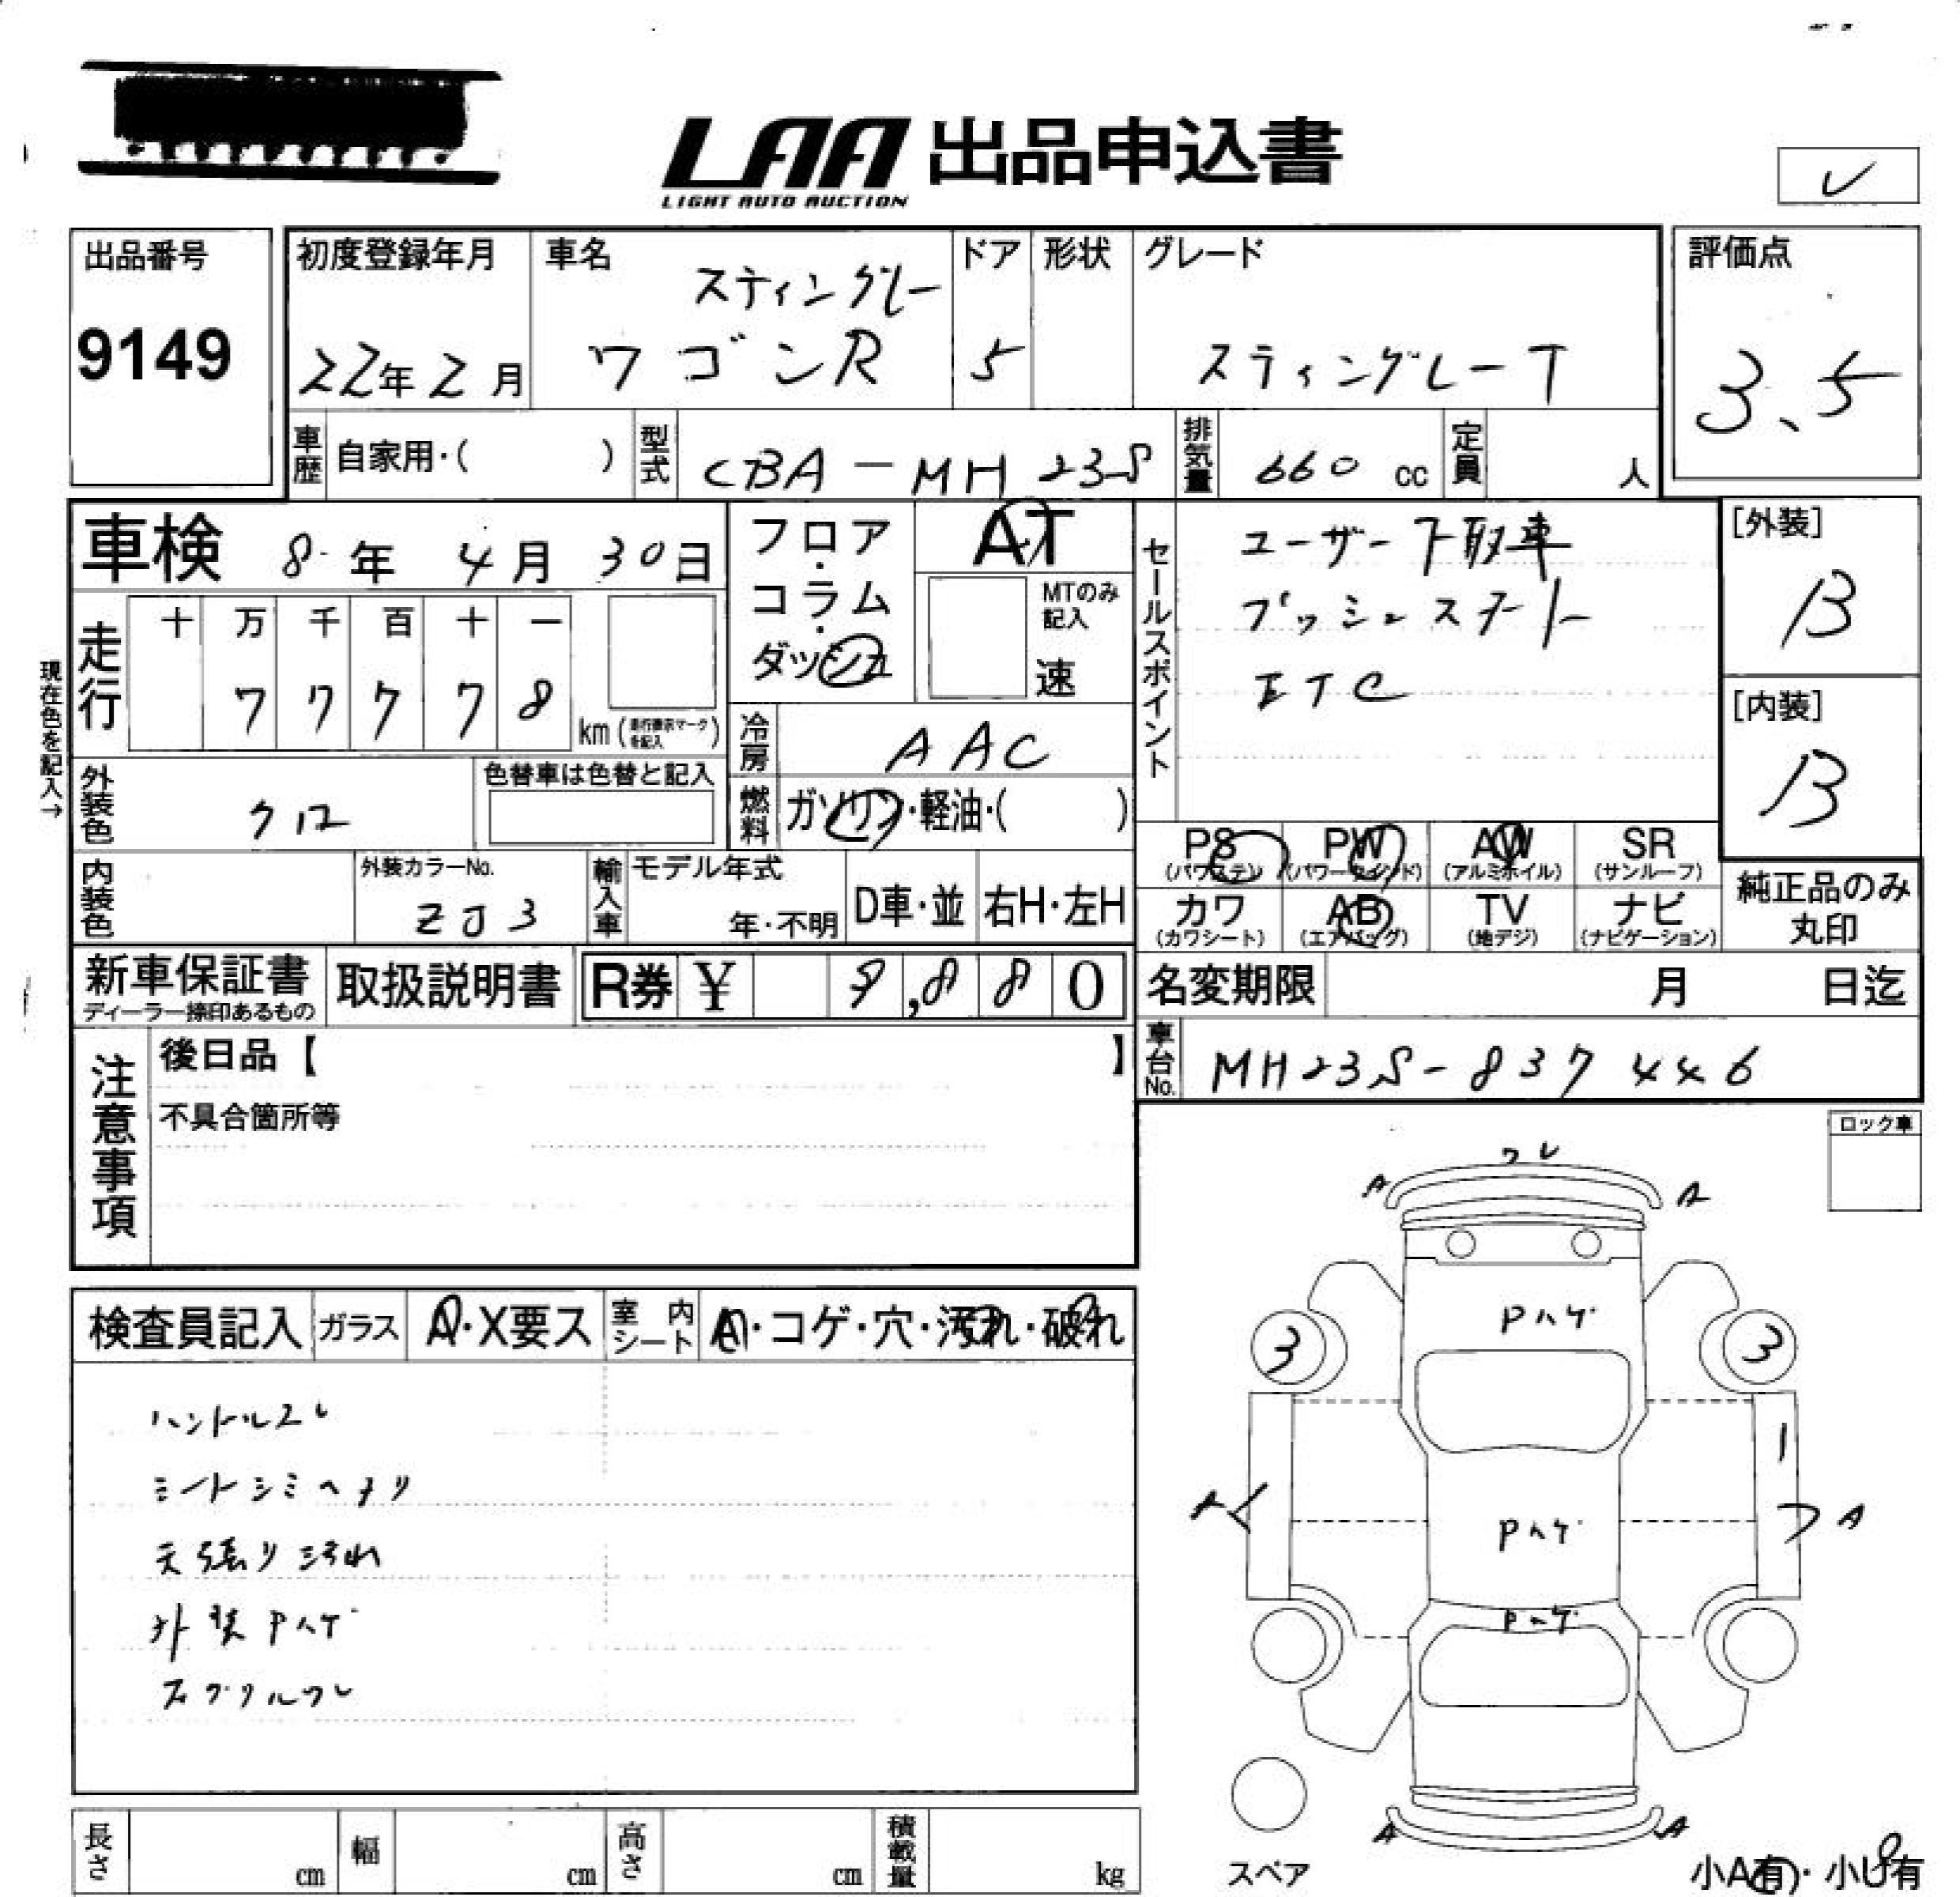 LAA 出品申込書
LIGHT AUTO AUCTION
レ
出品番号
9149
初度登録年月
22年2月
車名
スティングレー
ワゴンR
ドア
5
形状
グレード
スティングレーT
評価点
3.5
車歴 自家用・( )
型式 CBA-MH23S
排気量 660 cc
定員 人
車検 8年 4月 30日
フロア・コラム・ダッシュ
AT
MTのみ記入
速
セールスポイント
ユーザー下取車
プッシュスタート
ETC
[外装]
B
[内装]
B
現在色を記入→
走行
十 万 千 百 十 一
7 7 7 7 8
km (走行表示マークを記入)
冷房 AAC
外装色 クロ
色替車は色替と記入
燃料 ガソリン・軽油・( )
PS (パワステ)
PW (パワーウインド)
AW (アルミホイル)
SR (サンルーフ)
カワ (カワシート)
AB (エアバッグ)
TV (地デジ)
ナビ (ナビゲーション)
純正品のみ丸印
内装色
外装カラーNo.
ZJ3
輸入車
モデル年式
年・不明
D車・並
右H・左H
新車保証書
ディーラー捺印あるもの
取扱説明書
R券 ¥ 9,880
名変期限 月 日迄
車台No. MH23S-837446
注意事項
後日品【 】
不具合箇所等
ロック車
検査員記入
ガラス A・X要ス
室内シート A・コゲ・穴・汚れ・破れ
ハンドルスレ
シートシミヘタリ
天張り汚れ
外装Pハゲ
Fグリルワレ
ワレ
A A
Pハゲ
3 3
A
Pハゲ
A
Pハゲ
A A
スペア
小A有・小U有
長さ cm
幅 cm
高さ cm
積載量 kg